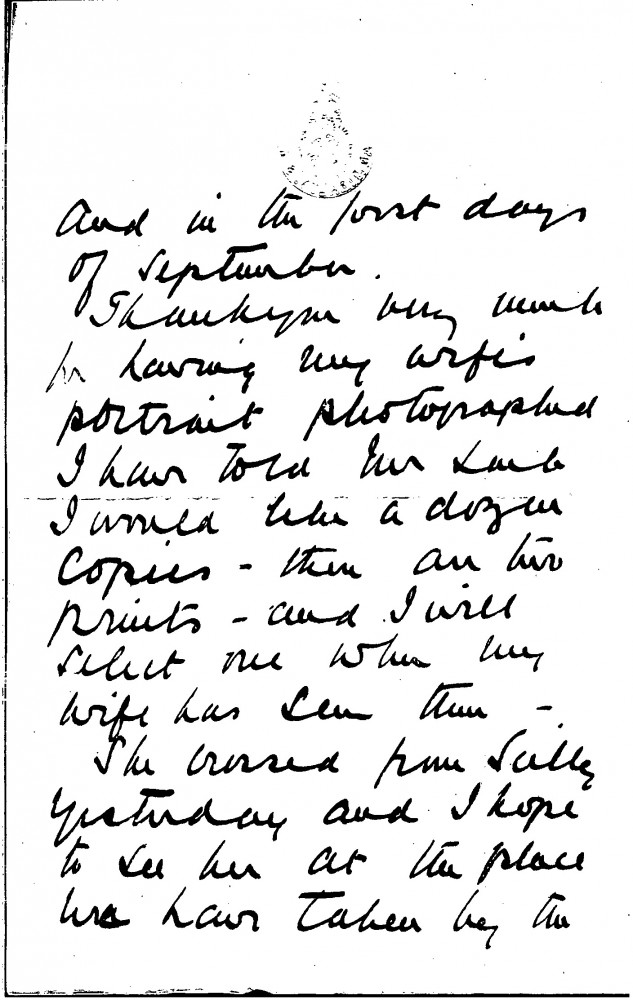 and in the first days
of September.
Thank you very much
for having my wife's
portrait photographed
I have told Mr
I would like a dozen
copies - there are two
prints - and I will
select one when my
wife has seen them -
She crossed from Scilly
yesterday and I hope
to see her at the place
we have taken by the